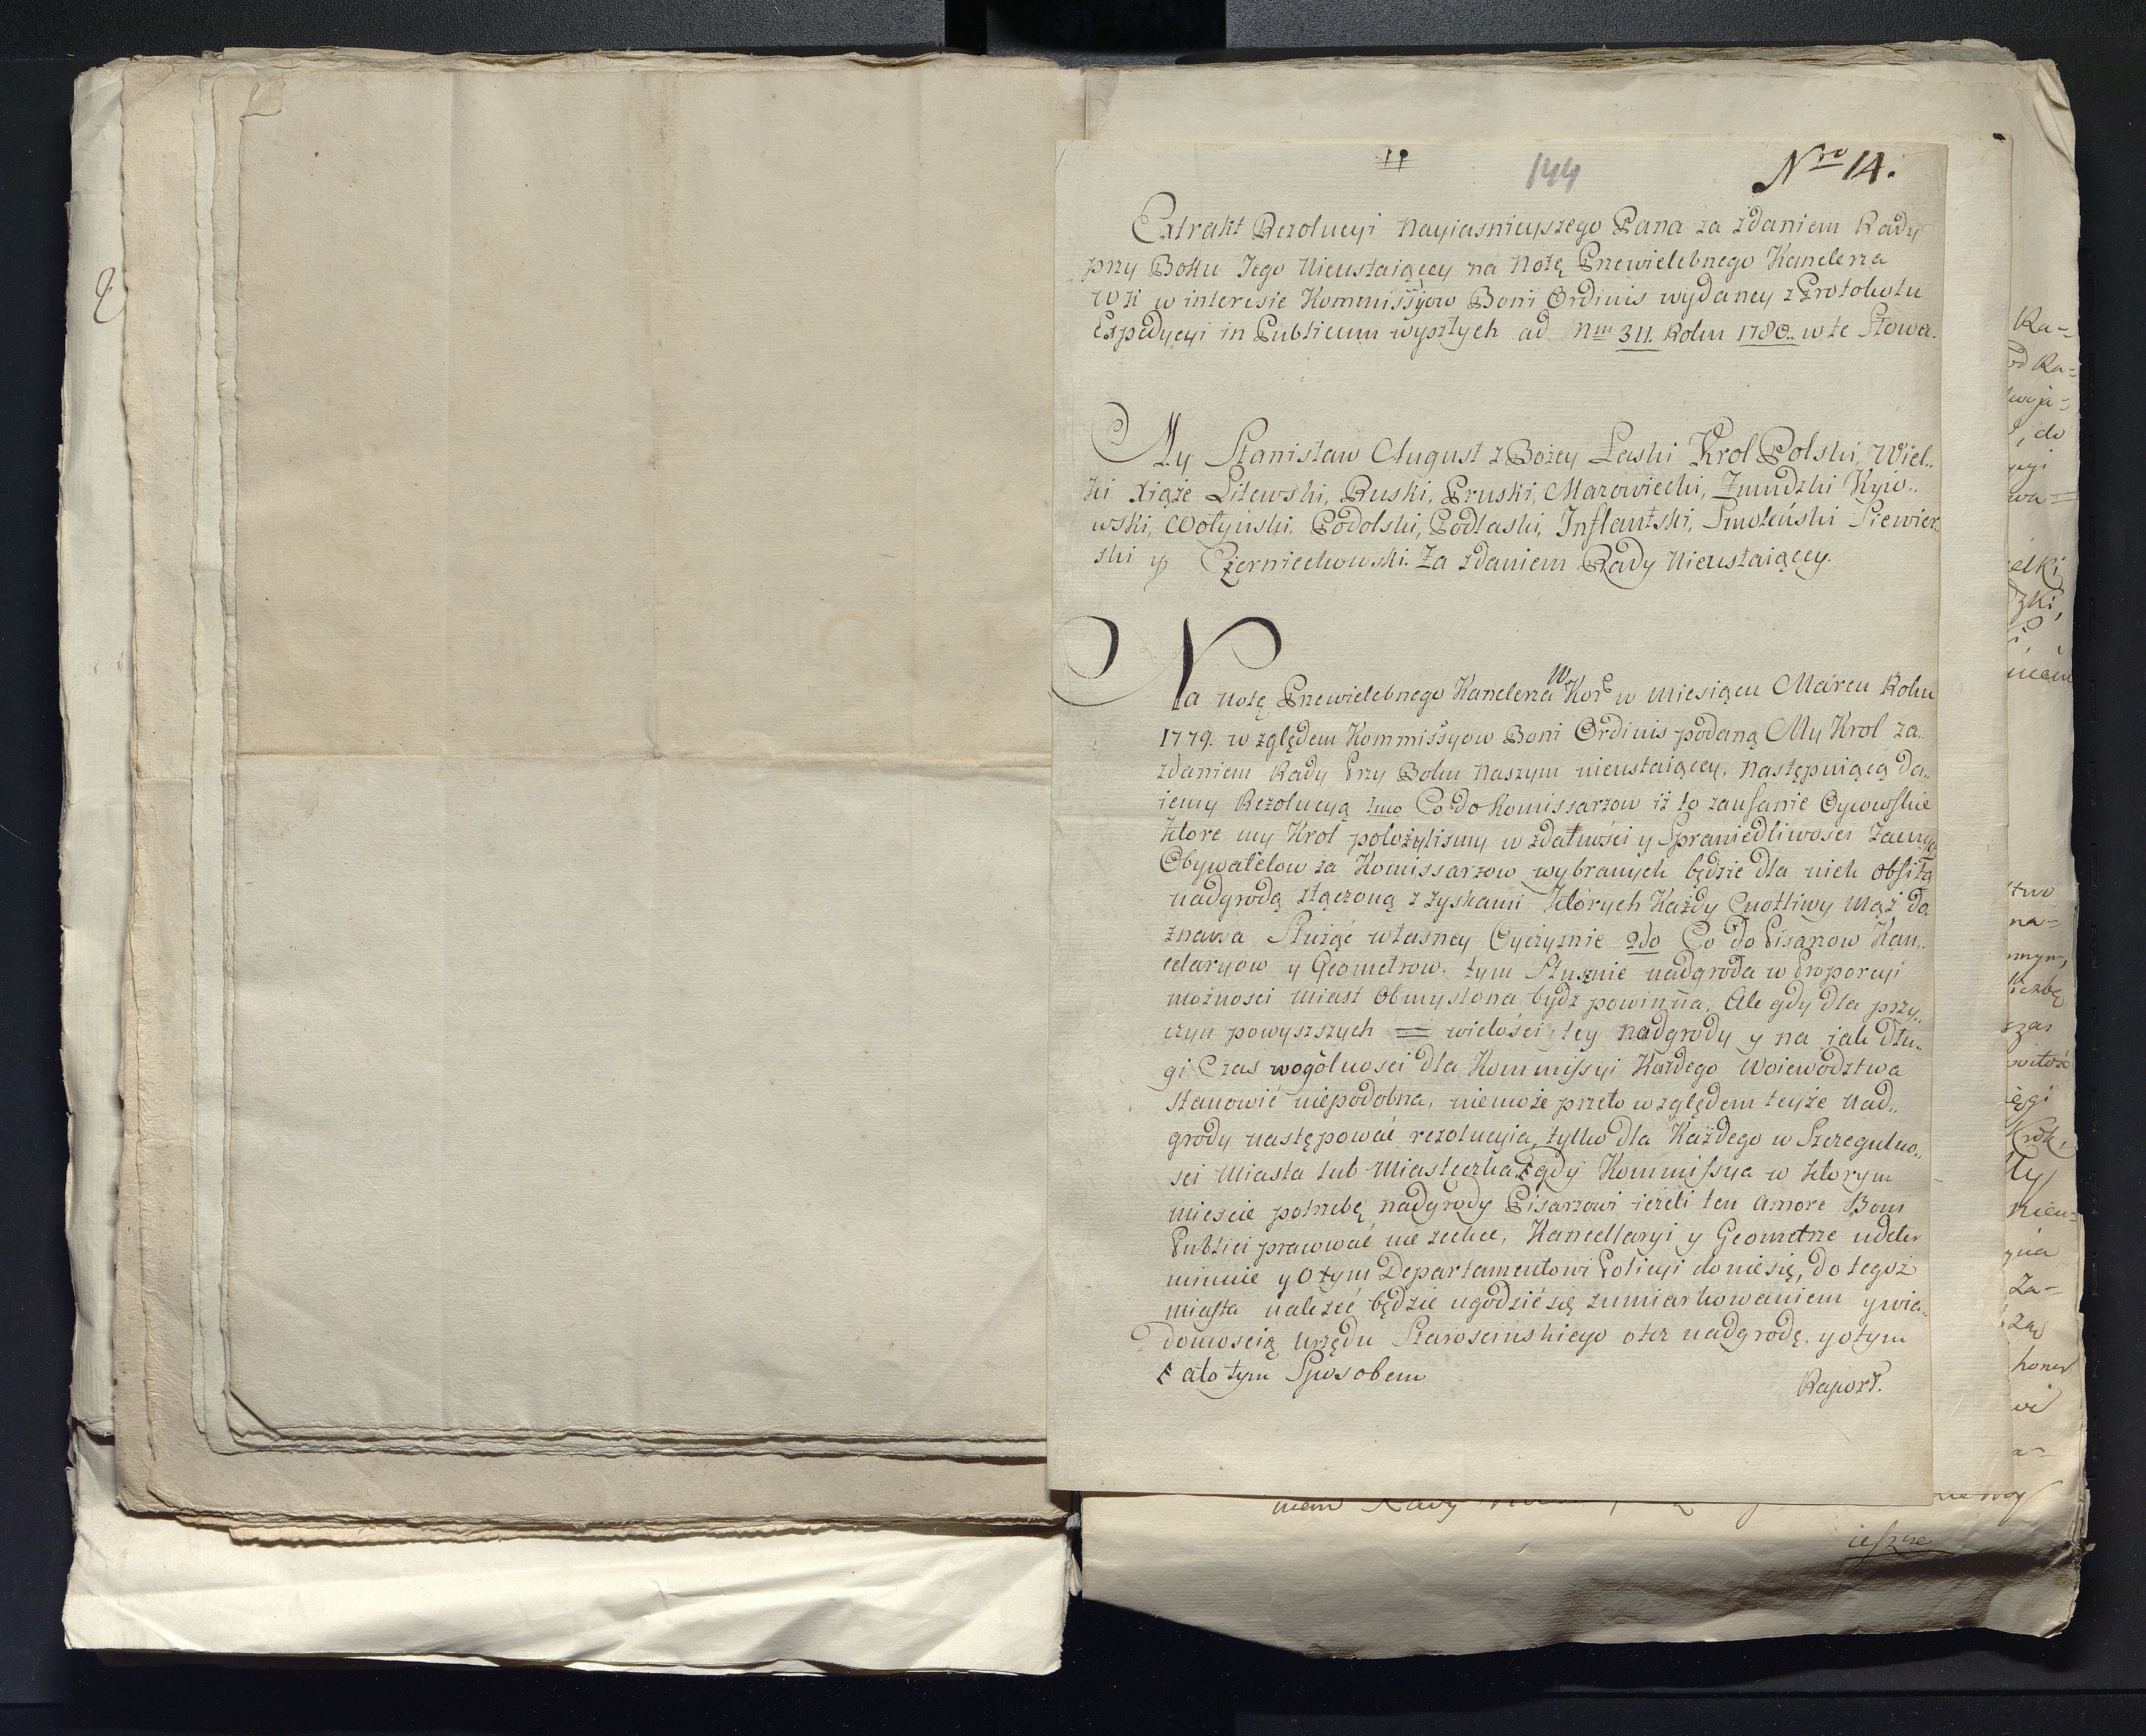 144
Nro 14.
Extrakt Rezolucyi Nayiasnieyszego Pana za zdaniem Rady
przy Boku Jego Nieustaiącey na Notę Przewielebnego Kanclerza
WK w interesie Kommissyow Boni Ordinis wydaney z Protokołu
Expedycyi in Publicum wyszłych ad Nrm 311. Roku 1780.. w te Słowa.
My Stanisław August z Bożey Łaski Krol Polski, Wiel..
ki Xiąże Litewski, Ruski, Pruski, Mazowiecki, Zmudzki Kyio..
wski, Wołyński, Podolski, Podlaski, Inflantski, Smoleński Siewier..
ski y Czerniechowski. Za zdaniem Rady Nieustaiącey.
Na Notę Przewielebnego Kanclerza W Kor: w Miesiącu Marcu Roku
1779. względem Kommissyow Boni Ordinis podaną My Krol za..
zdaniem Rady Przy Boku Naszym nieustaiącey, Następuiącą da..
iemy Rezolucyą 1mo Co do Komissarzow iż to zaufanie Oycowskie
ktore my Krol położylismy w zdatności y Sprawiedliwosci Zacnych
Obywatelow za Komissarzow wybranych będzie dla nich obfitą
nadgrodą złączoną z zyskami ktorych Każdy Cnotliwy Mąż do
znawa Służąc własney Oyczyznie 2do Co do Pisarzow Kan..
cellaryow y Geometrow, tym Słusznie nadgroda w Proporcyi
możnosci Miast obmyslona bydz powinna. Ale gdy dla przy..
czyn powyszszych wielości tey nadgrody y na iak dłu..
gi Czas wogòlnosci dla Kommissyi Każdego Woiewodztwa
stanowić niepodobna, niemoże przeto względem teyże Nad..
grody następować rezolucyia, tylko dla Każdego w Szczegulno..
sci Miasta lub Miasteczka, gdy Kommissya w ktorym
Miescie potrzebę nadgrody Pisarzowi ieżeli ten Amore Boni
Publici pracować nie zechce, Kancellaryi y Geometrze udeter
minuie y Otym Departamentowi Policyi doniesię, do tegoż
miasta należeć będzie ugodzić się zumiarkowaniem y wia..
domoscią Urzędu Starościnskiego otez nadgrodę, y otym
ato tym Sposobem
Raport.